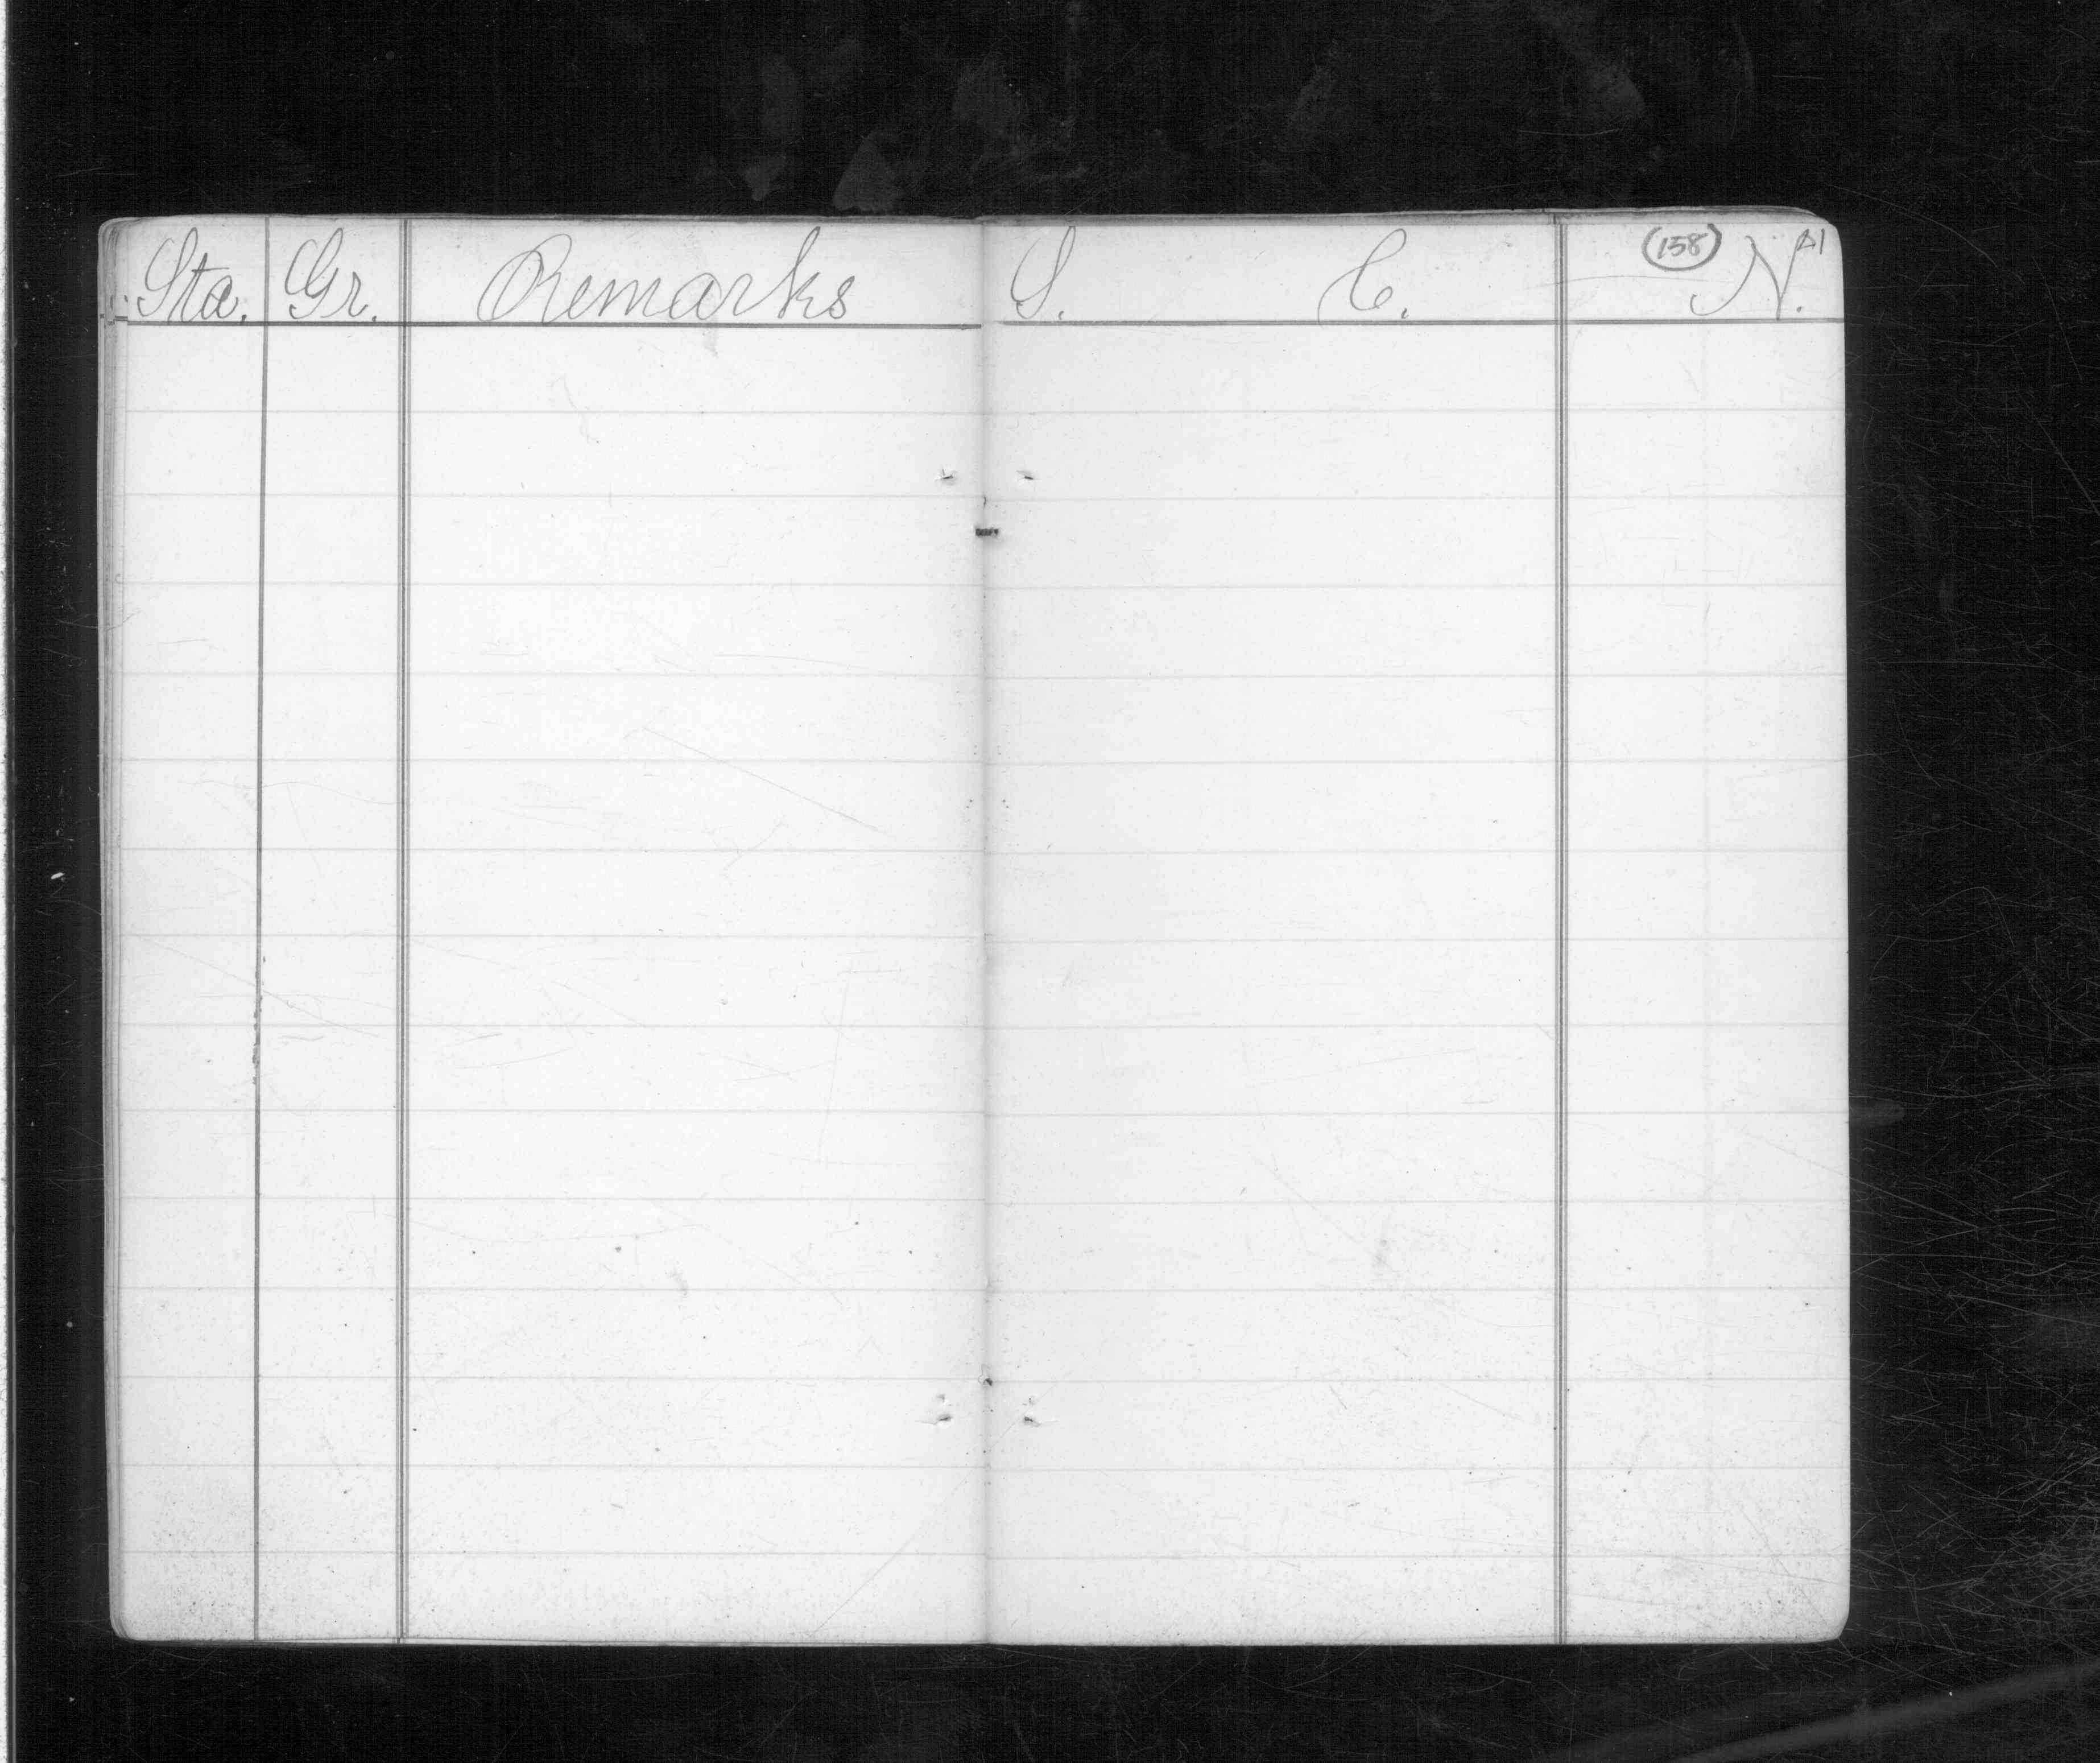 (158)
Sta. Gr. Remarks S. C. N.